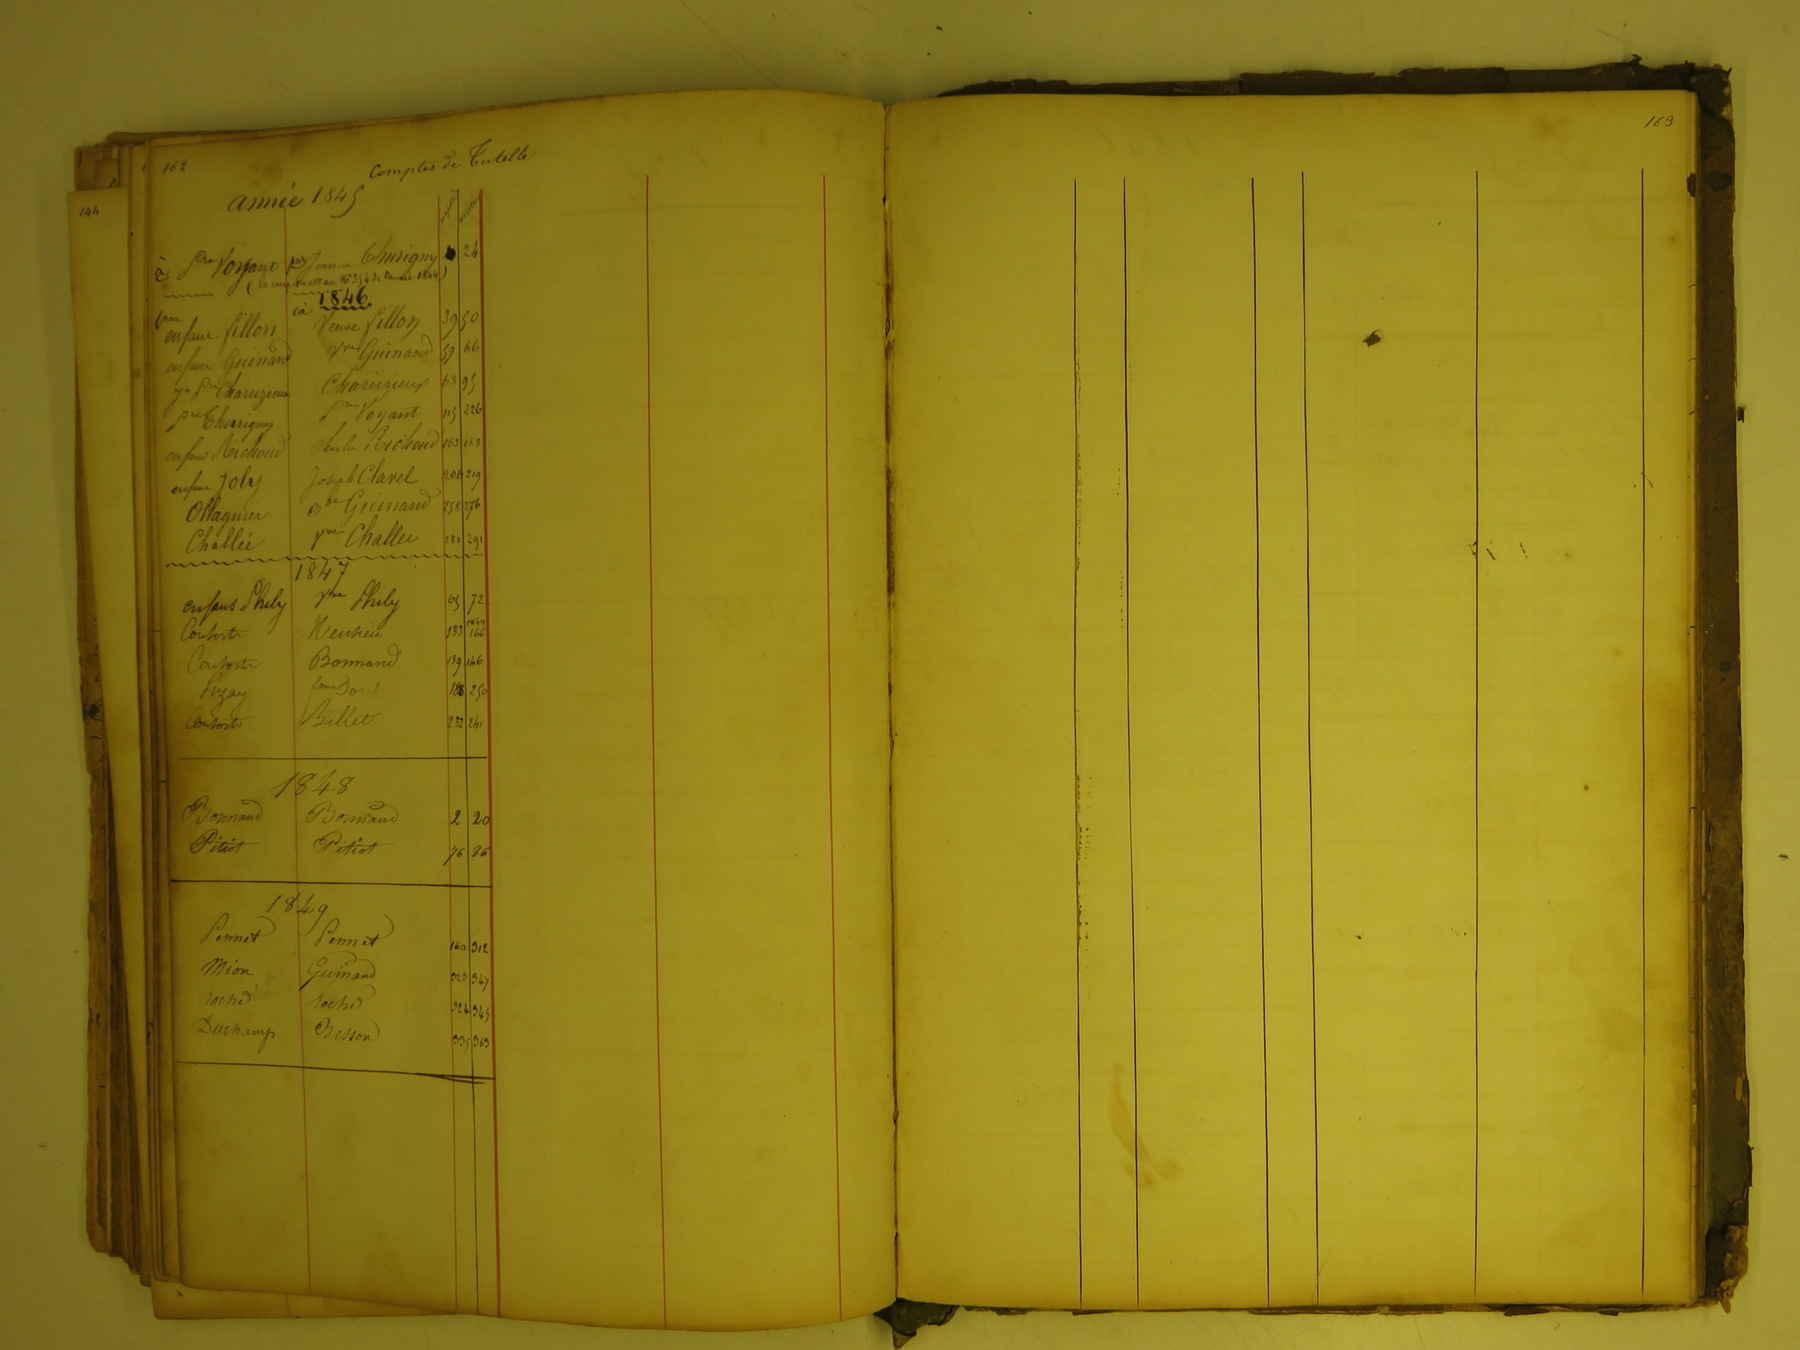 162
Comptes de Tutelle
163
144
année 1845
à pre Voyant par Jeanne Thurigny 24
1846
par à
enfans fillon Veuve fillon 39 50
enfans Guinand vve Guinand 59 66
Chareizieux 63 95
pre Thurigny pre Voyant 115 226
enfans Richoud Richoud 163 163
enfans Joly Joseph Clavel 206 219
Ollagnier Guinand 258 276
Challée vve Challée 281 291
1847
enfans Phily vve Phily 65 72
Consorts 133 166
Consorts Bonnand 139 146
Pizay 188 250
Consorts Billet 232 241
1848
Bonnand Bonnand 2 20
Pitiot Pitiot 76 86
1849
Pennet Pennet 160 312
Mion Guinand 323 347
roche roche 324 345
Duchamp Besson 335 363